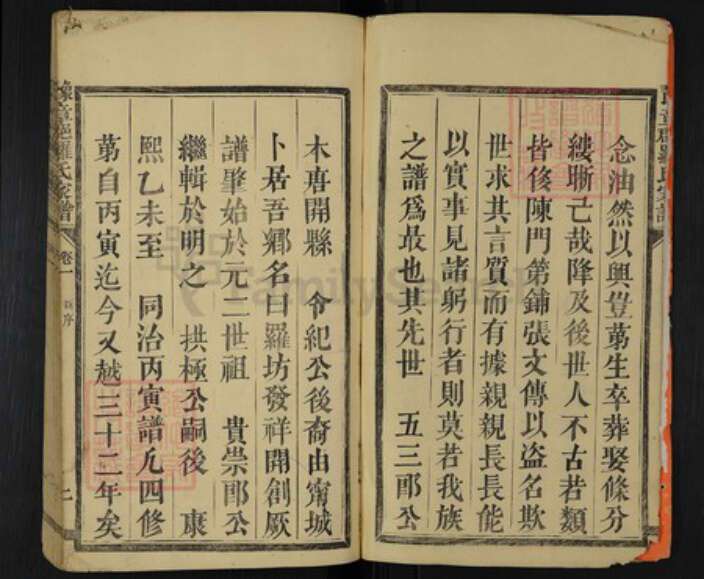 念油然以興豈苐生卒葬娶條分
縷晣已哉降及後世人不古若類
皆侈陳門第鋪張文傳以盜名欺
世求其言質而有據親親長長能
以實事見諸躬行者則莫若我族
之譜爲最也其先世　五三郎公
木唐開縣　令紀公後裔由甯城
卜居吾鄉名曰羅坊發祥開創厥
譜肇始於元二世祖　貴崇郎公
繼輯於明之　拱極公嗣後　康
熙乙未至　同治丙寅譜凢四修
苐自丙寅迄今又越三十二年矣
豫章郡羅氏家譜
卷一
序
FamilySearch